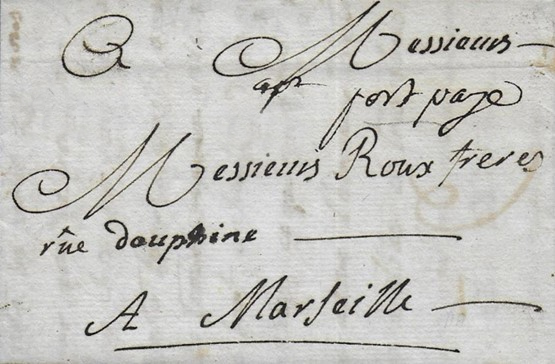 A Messieurs
port paye
Messieurs Roux freres
rüe dauphine
A Marseille